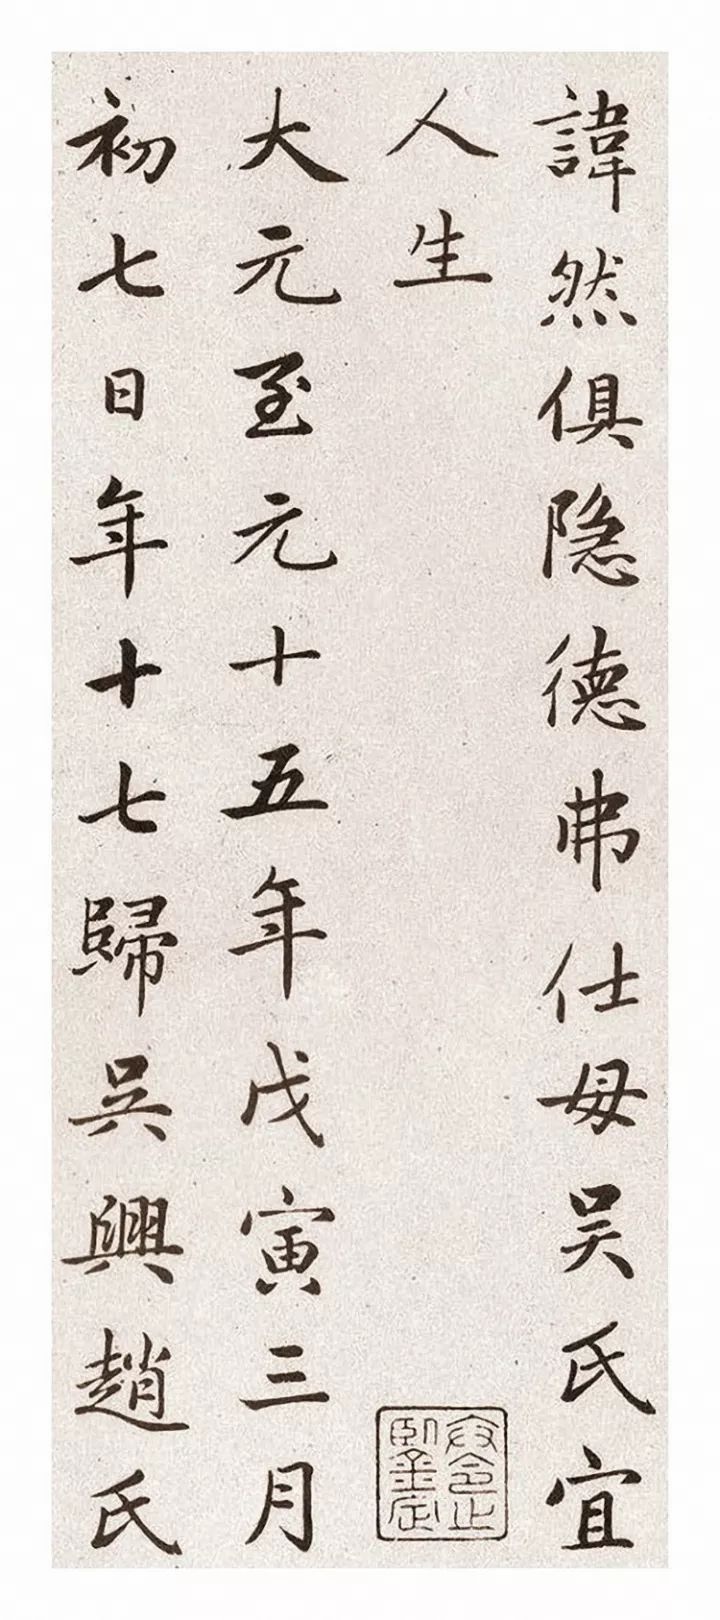 諱然俱隐德弗仕母吴氏宜
人生
大元至元十五年戊寅三月
初七日年十七歸吳興趙氏
卞令之鑒定